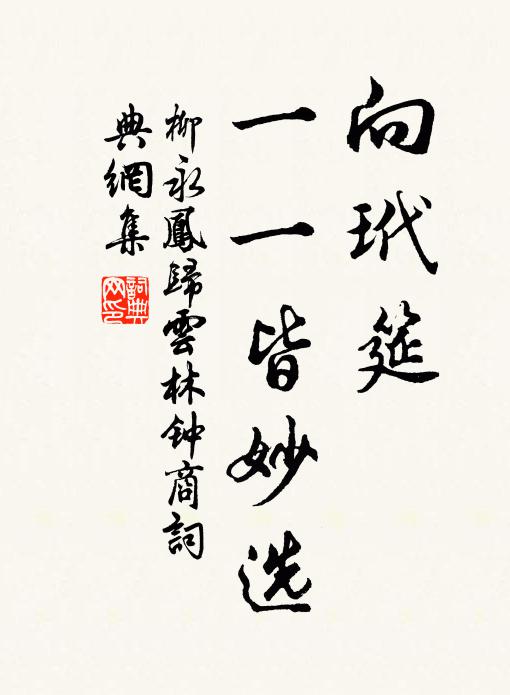 向玳筵
一一皆妙选
柳永鳳歸雲林钟商詞
典網集
詞典网印